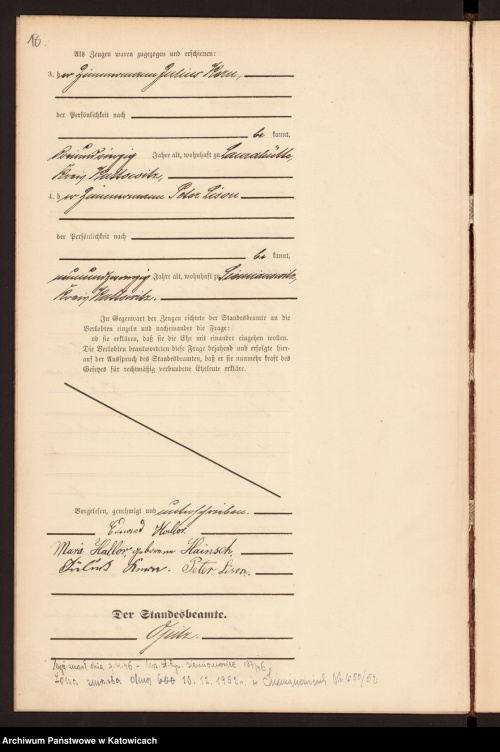 16.
Als Zeugen waren zugezogen und erschienen:
3. der Zimmermann Julius
der Persönlichkeit nach
be kannt,
Jahre alt, wohnhaft zu Laurahütte,
Kreis Kattowitz,
4. der Zimmermann Peter Lison
der Persönlichkeit nach
be kannt,
neunundzwanzig Jahre alt, wohnhaft zu Siemianowitz,
Kreis Kattowitz.
In Gegenwart der Zeugen richtete der Standesbeamte an die
Verlobten einzeln und nacheinander die Frage:
ob sie erklären, daß sie die Ehe mit einander eingehen wollen.
Die Verlobten beantworteten diese Frage bejahend und erfolgte hier-
auf der Ausspruch des Standesbeamten, daß er sie nunmehr kraft des
Gesetzes für rechtmäßig verbundene Eheleute erkläre.
Vorgelesen, genehmigt und unterschrieben.
Eduard Hallor.
Maria Hallor geborene Hainsch,
Julius Peter Lison.
Der Standesbeamte.
Opitz.
Mąż zmarł dnia
Żona zmarła dnia 10.12.1952 r. w Siemianowicach Nr. 600/52
Archiwum Państwowe w Katowicach